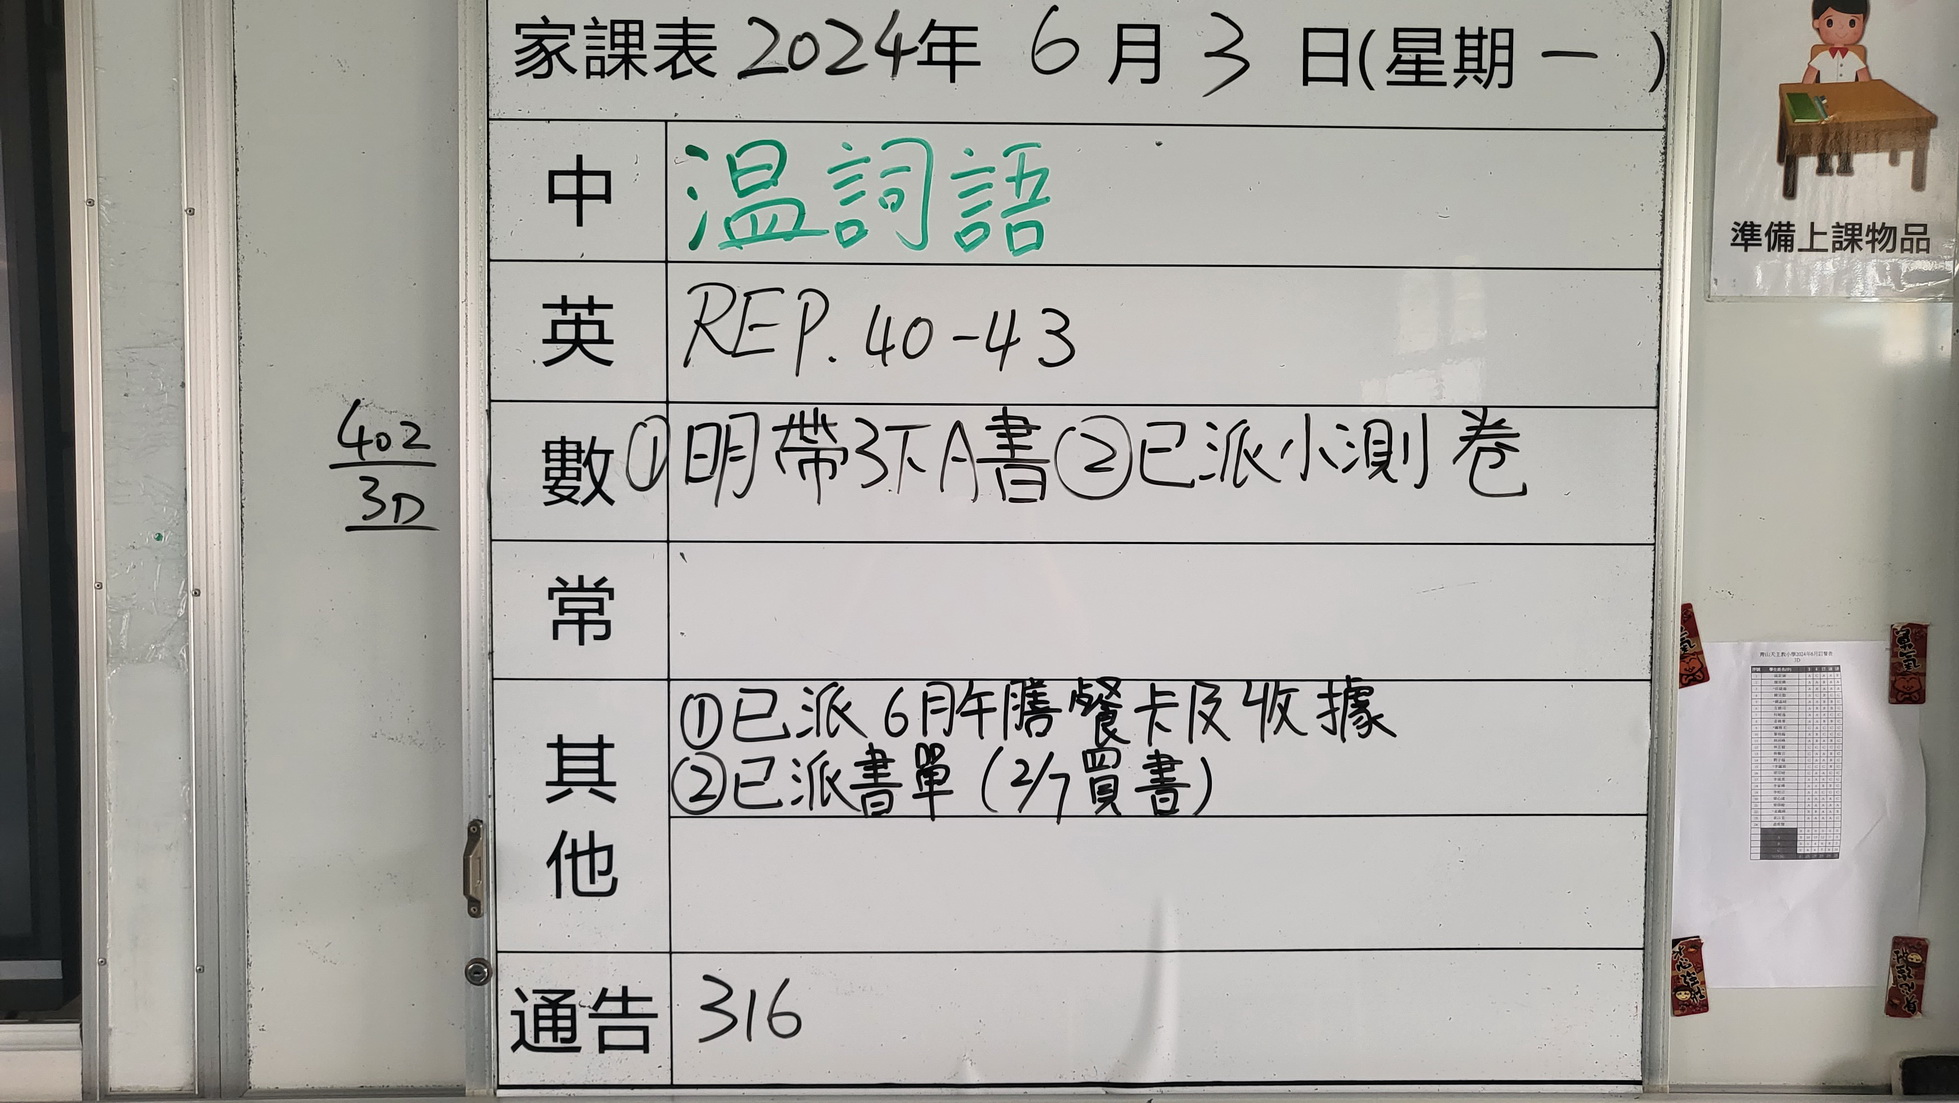 家課表 2024年 6 月 3 日(星期 一 )
中 温詞語
英 REP. 40-43
數 ①明帶3下A書②已派小測卷
常
其他 ①已派6月午膳餐卡及收據
②已派書單(2/7買書)
通告 316
402
3D
準備上課物品